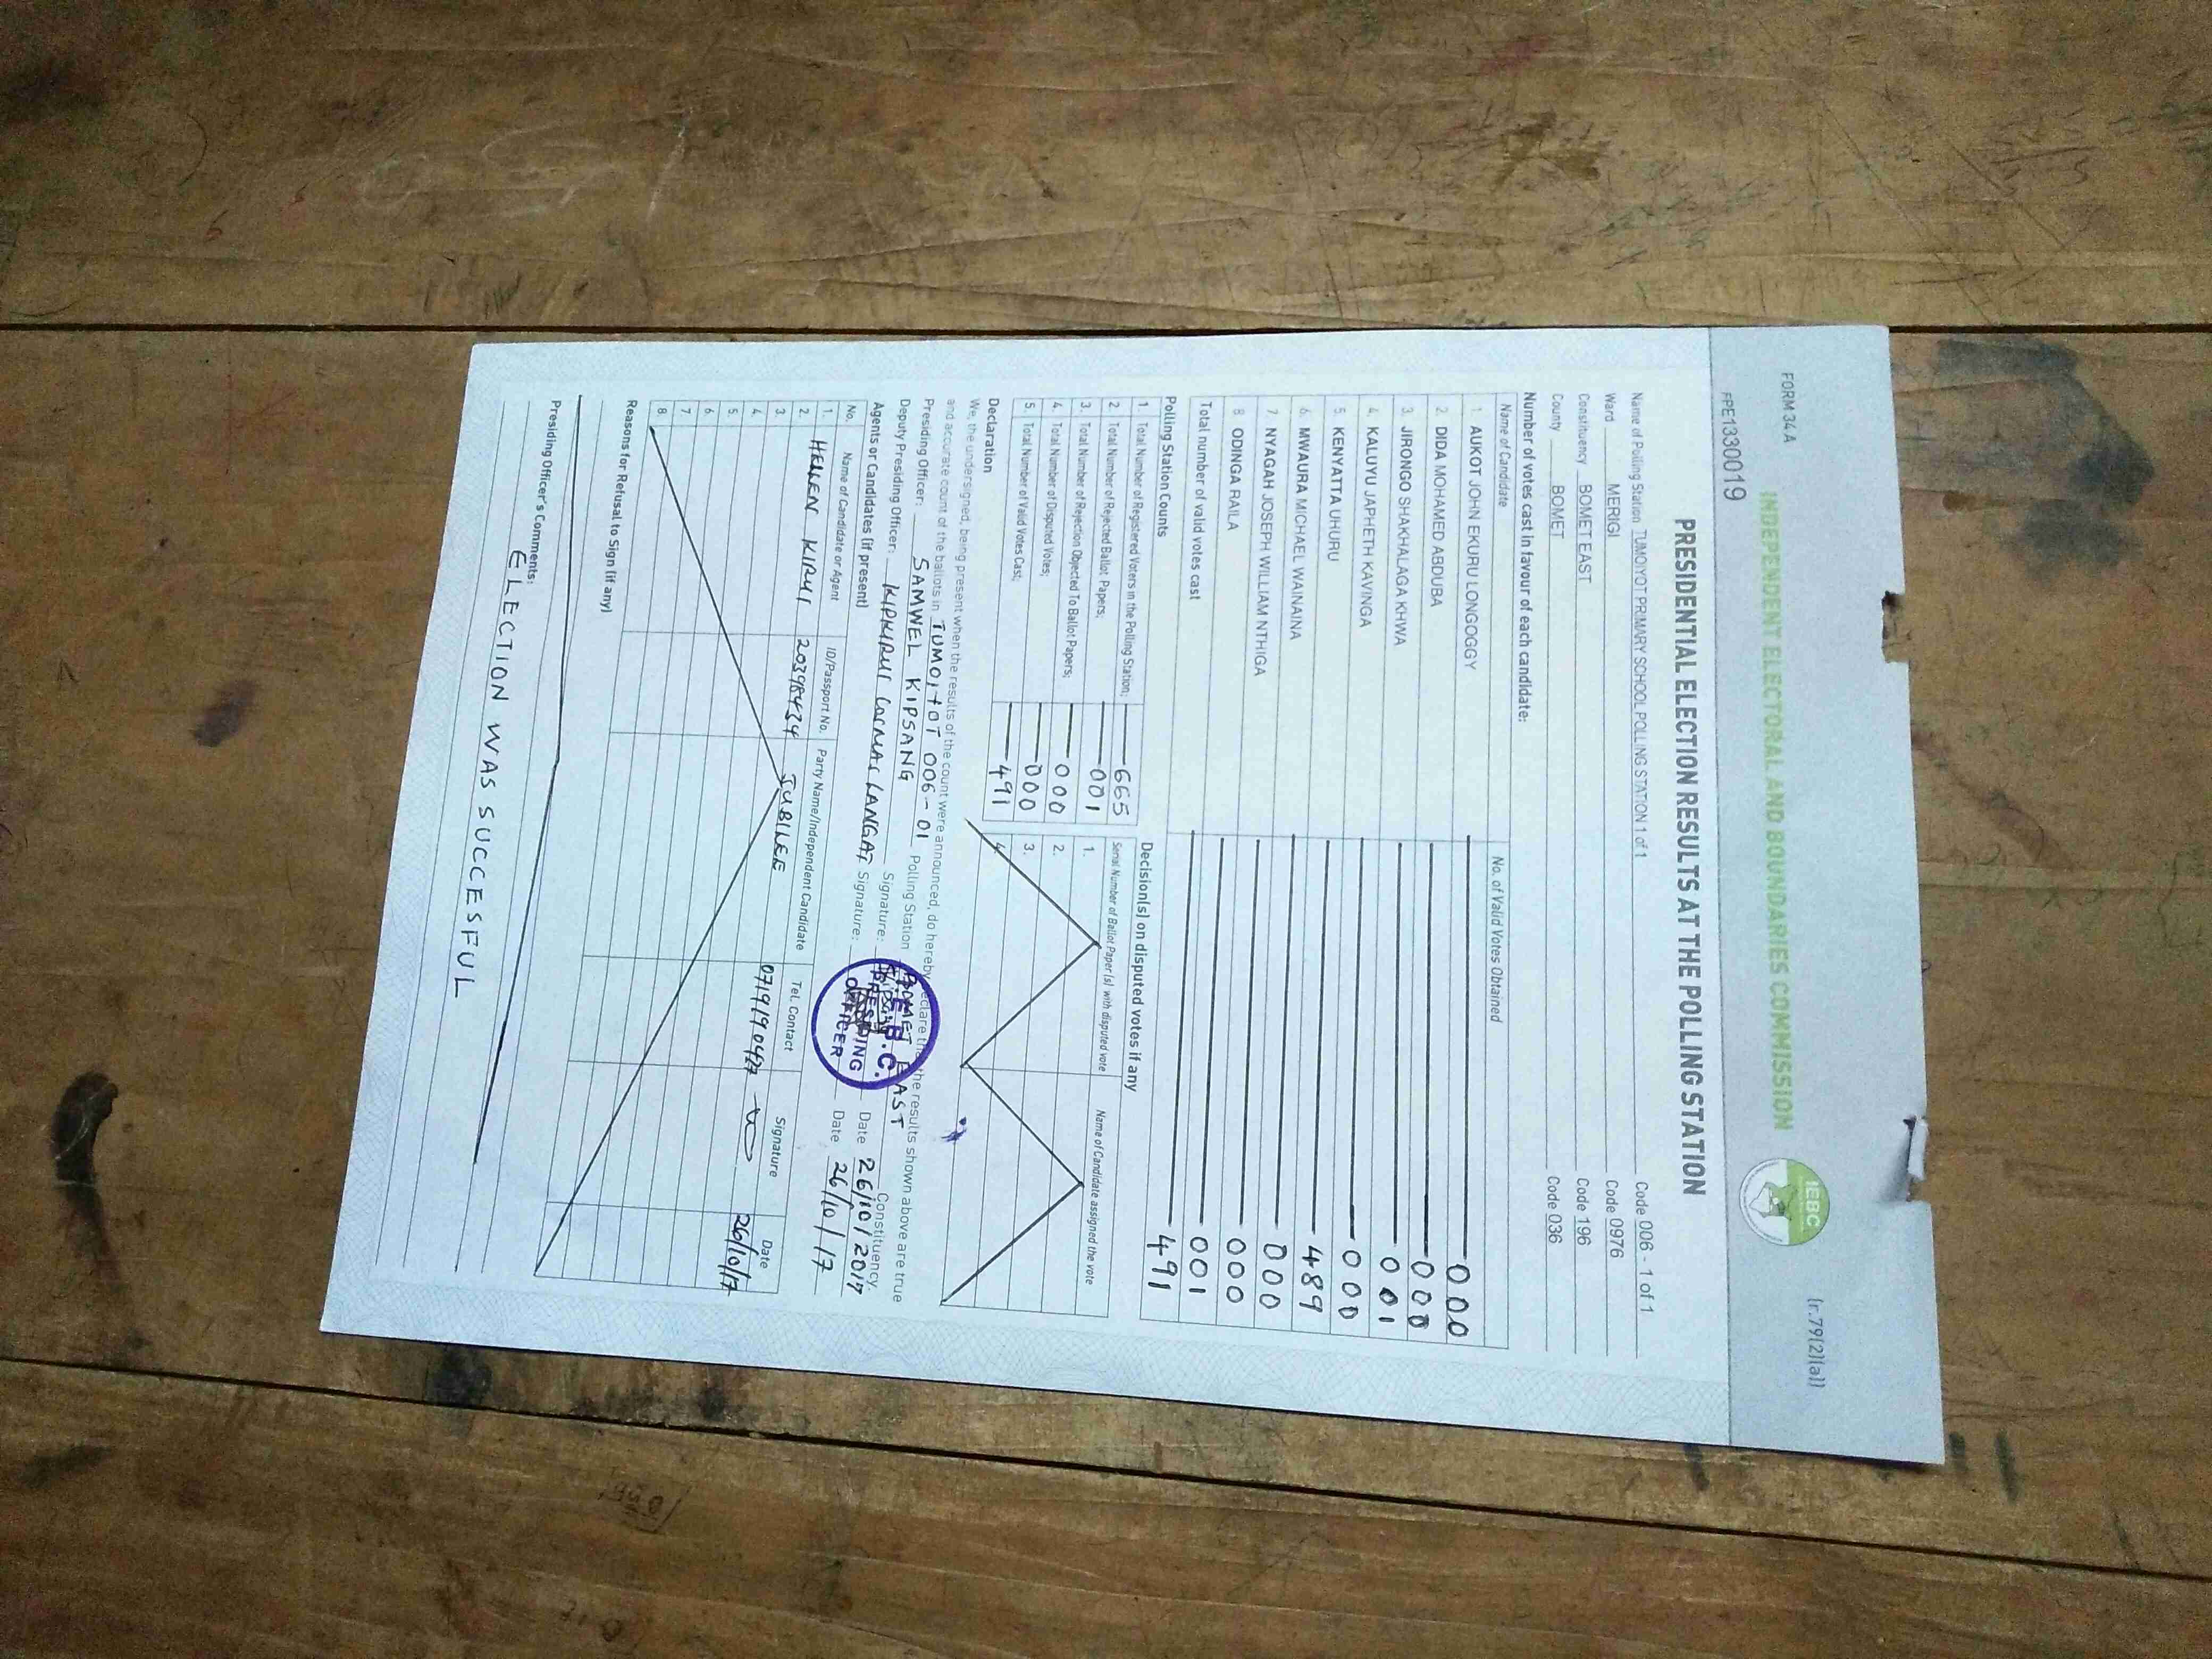 FORM 34A
(r.79(2)(a))
INDEPENDENT ELECTORAL AND BOUNDARIES COMMISSION
IEBC
FPE1330019
PRESIDENTIAL ELECTION RESULTS AT THE POLLING STATION
Name of Polling Station TUMOIYOT PRIMARY SCHOOL POLLING STATION 1 of 1 Code 006 - 1 of 1
Ward MERIGI Code 0976
Constituency BOMET EAST Code 196
County BOMET Code 036
Number of votes cast in favour of each candidate:
Name of Candidate No. of Valid Votes Obtained
1. AUKOT JOHN EKURU LONGOGGY 000
2. DIDA MOHAMED ABDUBA 000
3. JIRONGO SHAKHALAGA KHWA 001
4. KALUYU JAPHETH KAVINGA 000
5. KENYATTA UHURU 489
6. MWAURA MICHAEL WAINAINA 000
7 NYAGAH JOSEPH WILLIAM NTHIGA 000
8 ODINGA RAILA 001
Total number of valid votes cast 491
Polling Station Counts
1. Total Number of Registered Voters in the Polling Station; 665
2. Total Number of Rejected Ballot Papers; 001
3. Total Number of Rejection Objected To Ballot Papers; 000
4. Total Number of Disputed Votes; 000
5. Total Number of Valid Votes Cast; 491
Decision(s) on disputed votes if any
Serial Number of Ballot Paper(s) with disputed vote Name of Candidate assigned the vote
1.
2.
3.
4.
Declaration
We, the undersigned, being present when the results of the count were announced, do hereby declare that the results shown above are true
and accurate count of the ballots in TUMOIYOT 006-01 Polling Station BOMET EAST Constituency.
Presiding Officer: SAMWEL KIPSANG Signature: Date 26/10/2017
Deputy Presiding Officer: KIPKIRUI LANGAT Signature: Date 26/10/17
I.E.B.C.
PRESIDING
OFFICER
Agents or Candidates (if present)
No. Name of Candidate or Agent ID/Passport No. Party Name/Independent Candidate Tel. Contact Signature Date
1. HELLEN KIRUI 20398434 JUBILEE 0719190427 26/10/17
2.
3.
4.
5.
6.
7
8.
Reasons for Refusal to Sign (if any)
Presiding Officer's Comments:
ELECTION WAS SUCCESSFUL